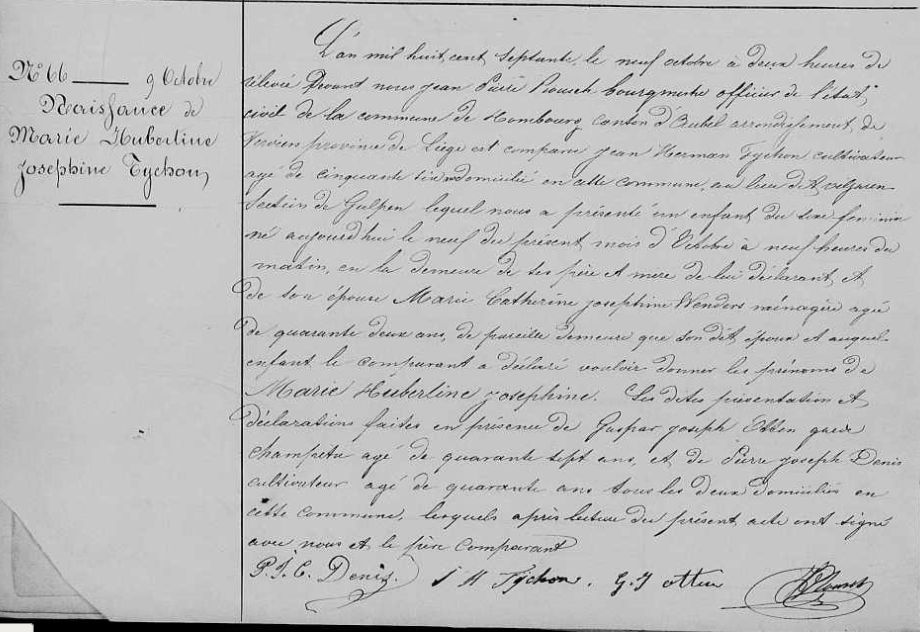 N° 66 9 Octobre
Naissance de
Marie Hubertine
Josephine Tychon
L'an mil huit cent septante, le neuf octobre à deux heures de
rélévée Devant nous jean Pierre bourgmestre officier de l'état
civil de la commune de Hombourg canton d'Aubel arrondissement de
Verviers province de Liège est comparu jean Herman Tychon cultivateur
agé de cinquante domicilié en cette commune, au lieu dit
Section de Gulpen lequel nous a présenté un enfant du sexe feminin
né aujourd'hui le neuf du présent mois d'Octobre à neuf heures du
matin, en la demeure de ses père et mere de lui déclarant, et
de son épouse Marie Catherine josephine Wenders ménagère agée
de quarante deux ans, de pareille demeure que son dit époux et auquel
enfant le comparant a déclaré vouloir donner les prénoms de
Marie Hubertine josephine. Les dites présentation et
déclarations faites en présence de Gaspar joseph Otten garde
champêtre agé de quarante sept ans, et de Pierre joseph Denis
cultivateur agé de quarante ans tous les deux domiciliés en
cette commune, lesquels après lecture du présent acte ont signé
avec nous et le père comparant
P. J. C. Denis. J H Tychon. G. J otten